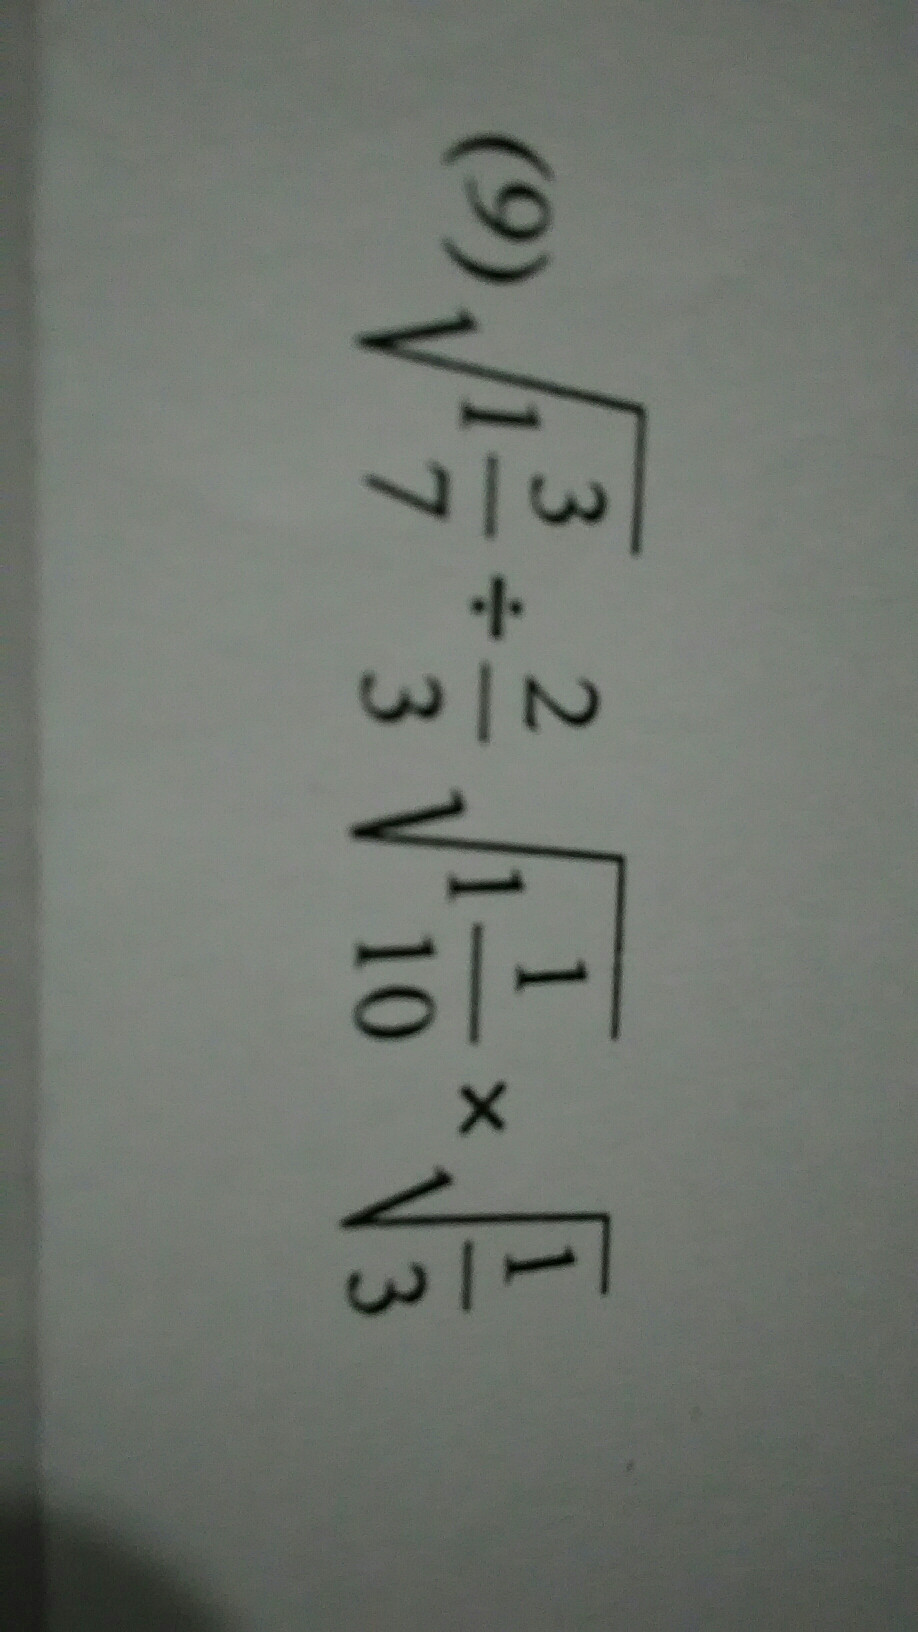 (9) √(1 3/7) ÷ 2/3 √(1 1/10) × √(1/3)